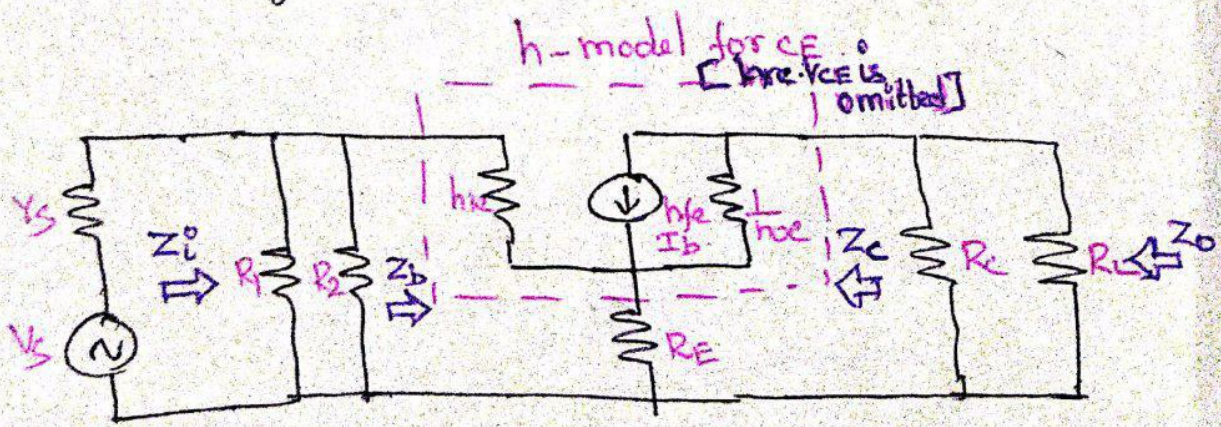 h-model for CE
[hre.VCE is
omitted]
rs
Zi
R1
R2
Zb
hie
hfe
Ib
1/hoe
Zc
RC
RL
Zo
Vs
RE